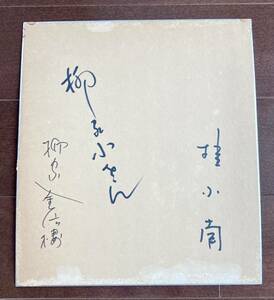 桂小南
柳家小さん
柳家金語楼